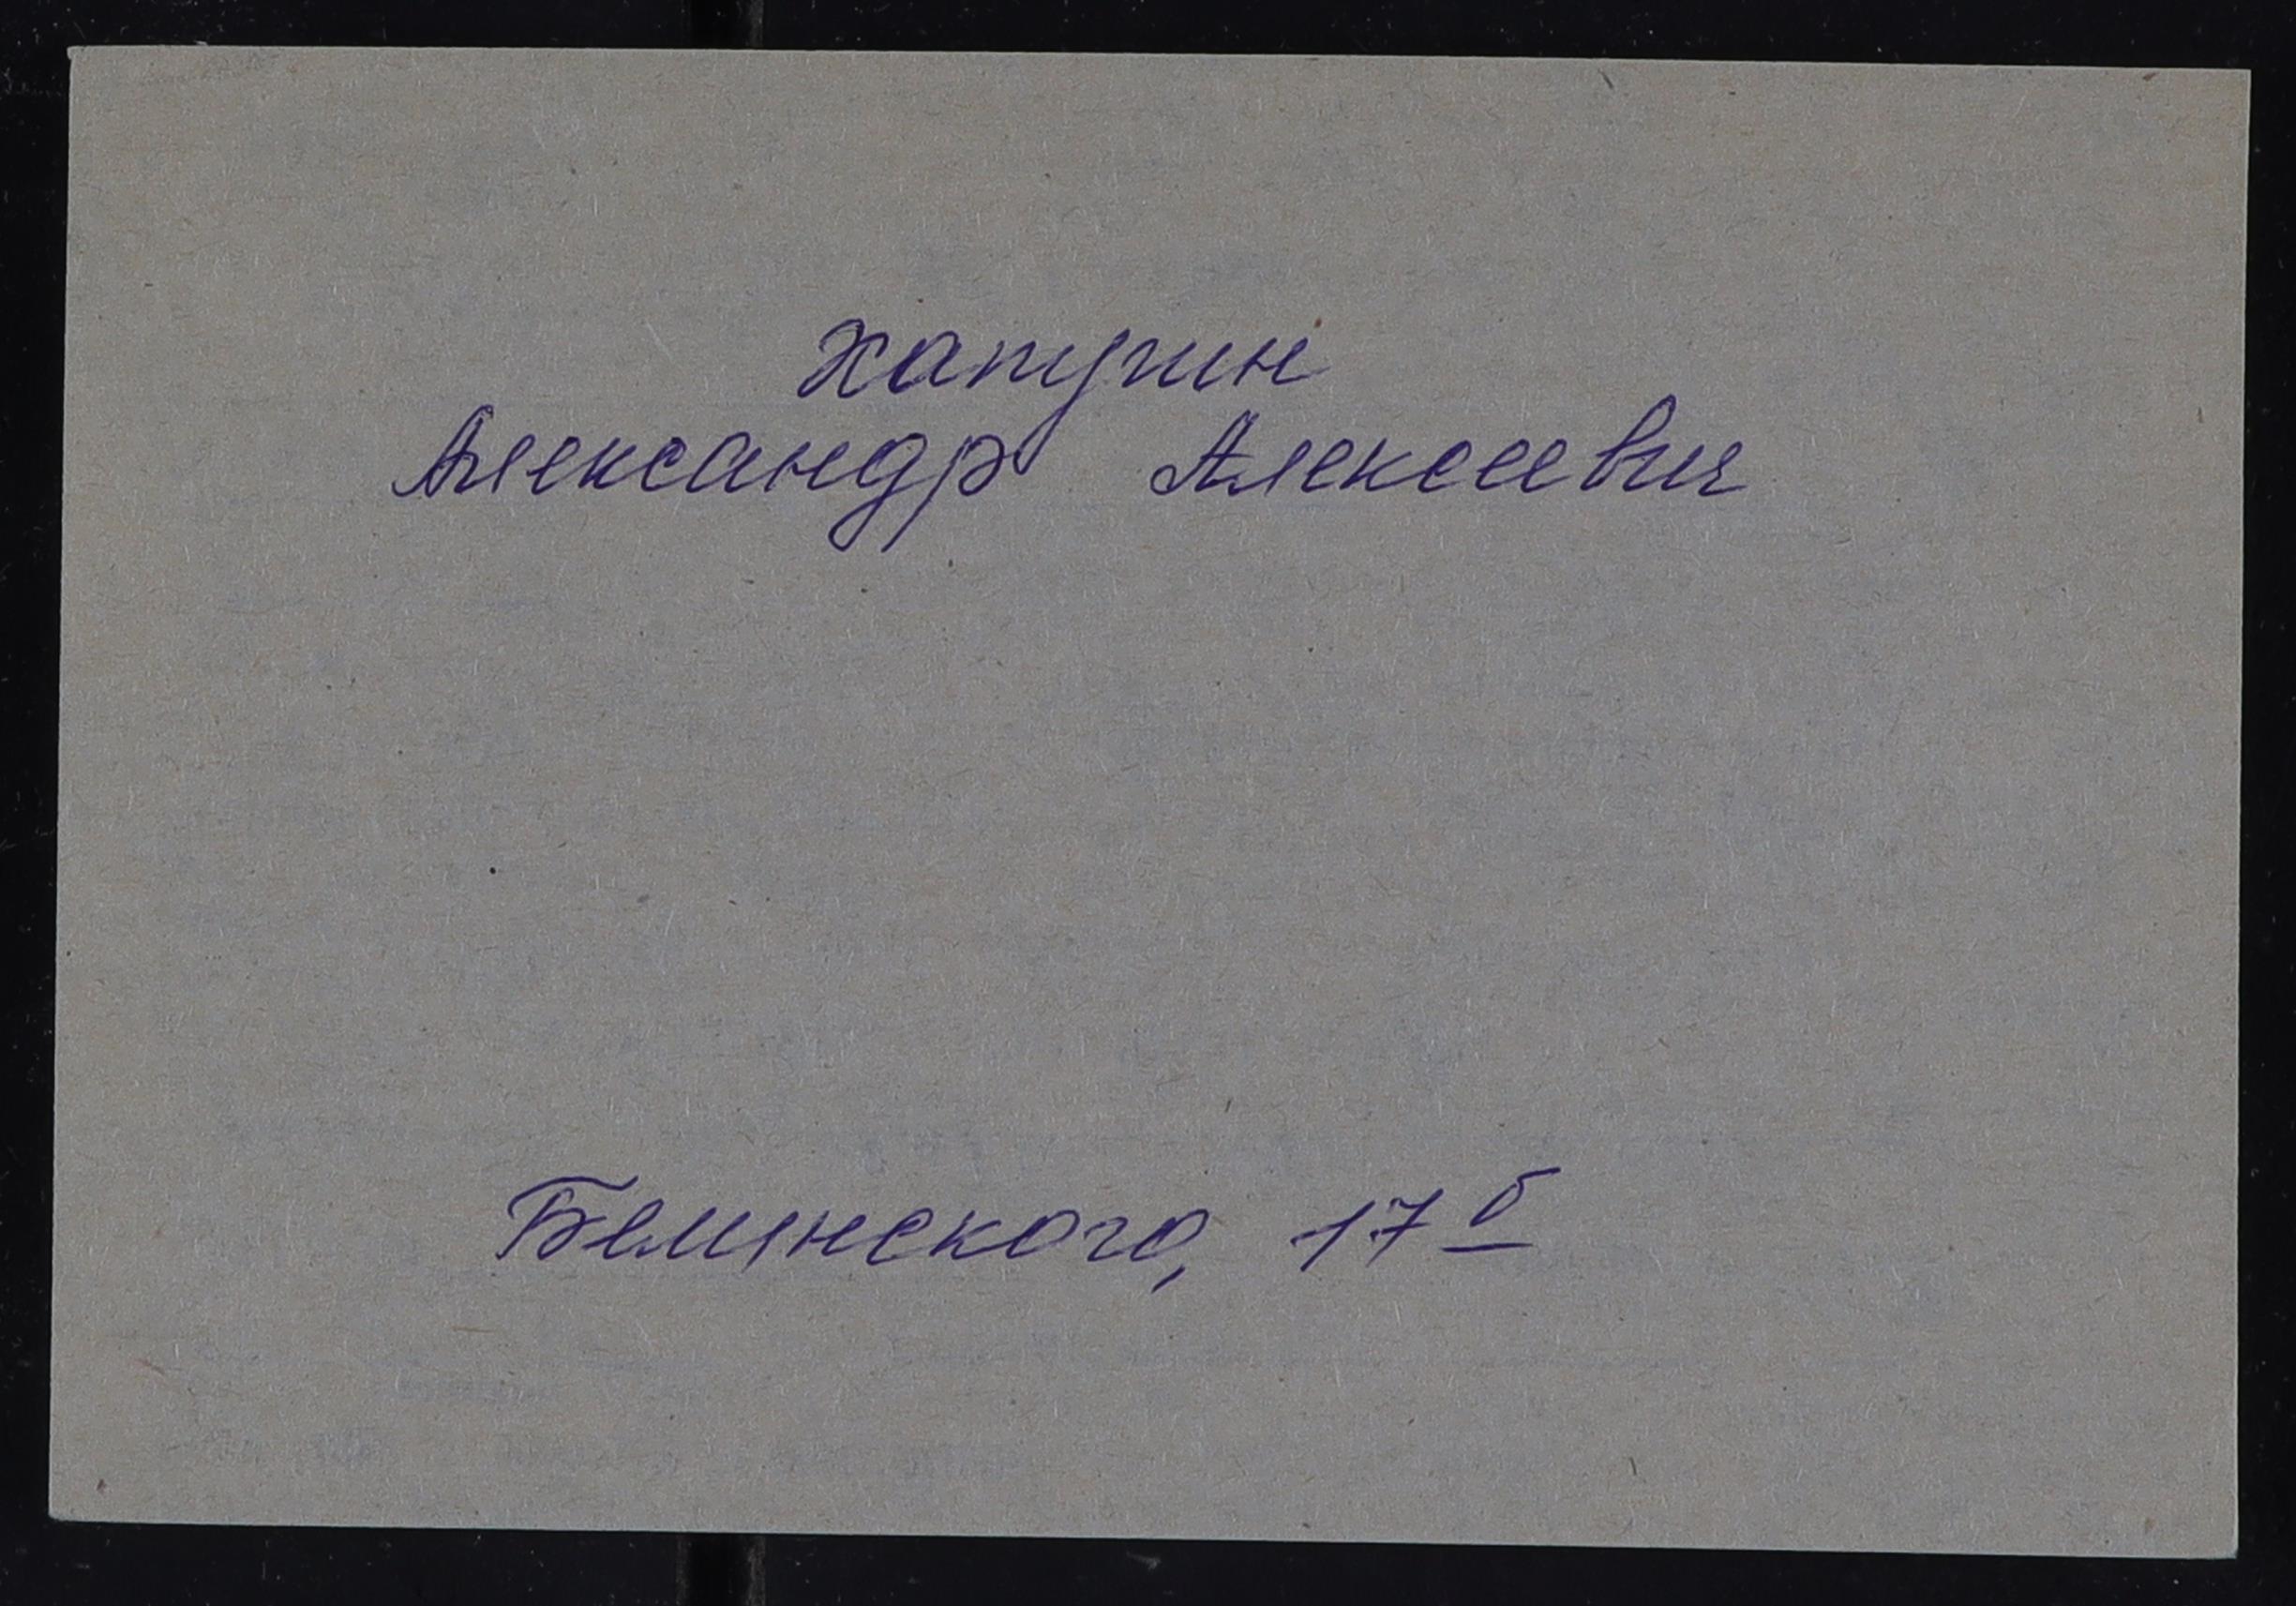 Хапугин
Александр Алексеевич
Белинского, 17 б